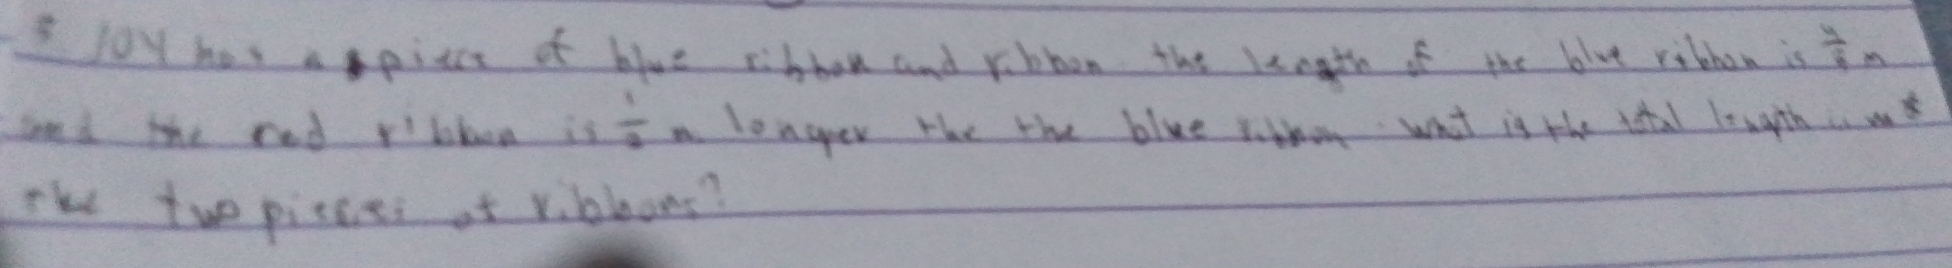 Joy has a piece of blue ribbon and ribbon the length of the blue ribbon is m
and the red ribbon is m longer the the blue ribbon. what is the total length in m
the two pieces of ribbons?